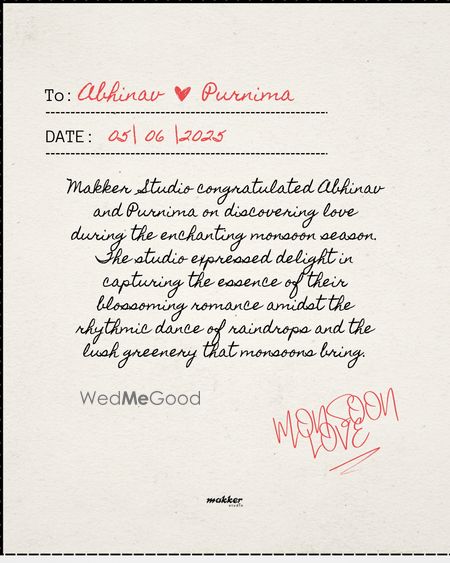 To: Abhinav ♥ Purnima
DATE: 05| 06 |2025
Makker Studio congratulated Abhinav
and Purnima on discovering love
during the enchanting monsoon season.
The studio expressed delight in
capturing the essence of their
blossoming romance amidst the
rhythmic dance of raindrops and the
lush greenery that monsoons bring.
WedMeGood
MONSOON
LOVE
makker
studio